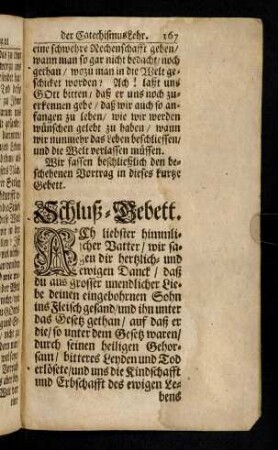 der Catechismus Lehr. 167
eine schwehre Rechenschafft geben/
wann man so gar nicht bedacht/ noch
gethan/ wozu man in die Welt ge-
schicket worden? Ach! laßt uns
GOtt bitten/ daß er uns noch zu-
erkennen gebe/ daß wir auch so an-
fangen zu leben/ wie wir werden
wünschen gelebt zu haben/ wann
wir nunmehr das Leben beschliessen/
und die Welt verlassen müssen.
Wir fassen beschließlich den be-
schehenen Vortrag in dieses kurtze
Gebett.
Schluß-Gebett.
ACh liebster himmli-
cher Vatter/ wir sa-
gen dir hertzlich- und
ewigen Danck/ daß
du aus grosser unendlicher Lie-
be deinen eingebohrnen Sohn
ins Fleisch gesand/ und ihn unter
das Gesetz gethan/ auf daß er
die/ so unter dem Gesetz waren/
durch seinen heiligen Gehor-
sam/ bitteres Leyden und Tod
erlösete/ und uns die Kindschafft
und Erbschafft des ewigen Le-
bens